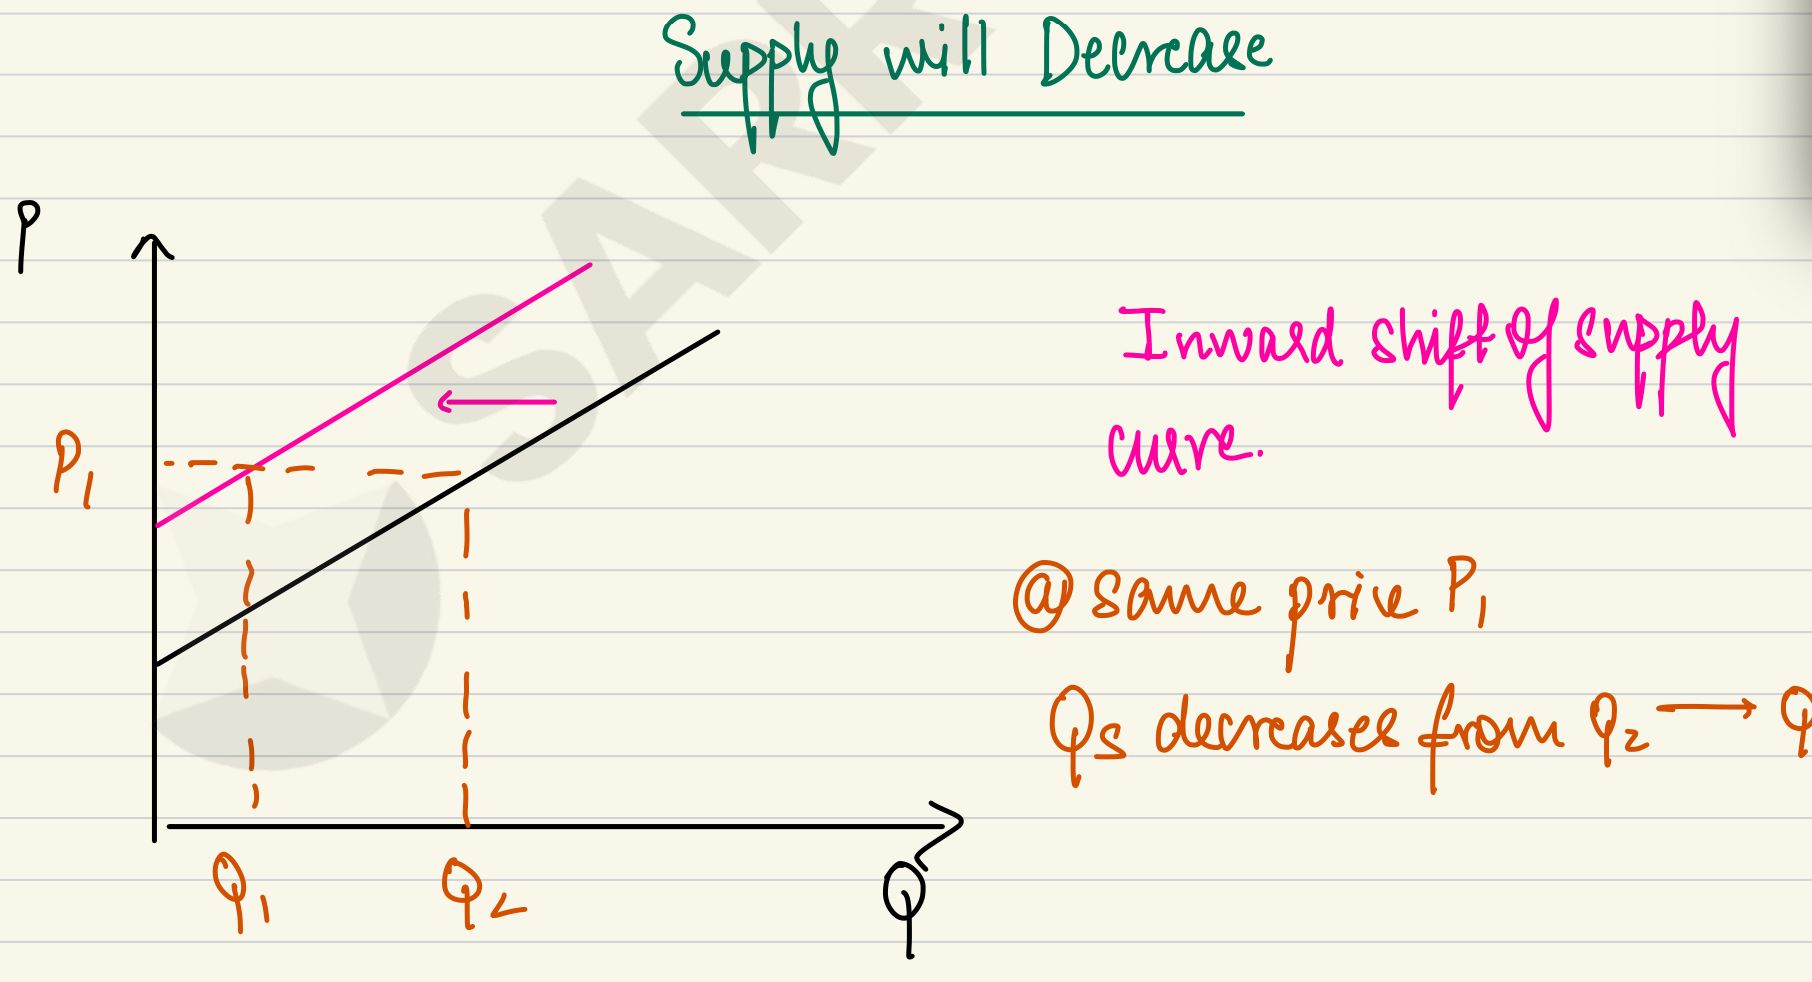 Supply will Decrease
P
Inward shift of supply
curve.
P1
@ same price P1
Qs decreases from Q2 → Q
Q1 Q2 Q
SARR